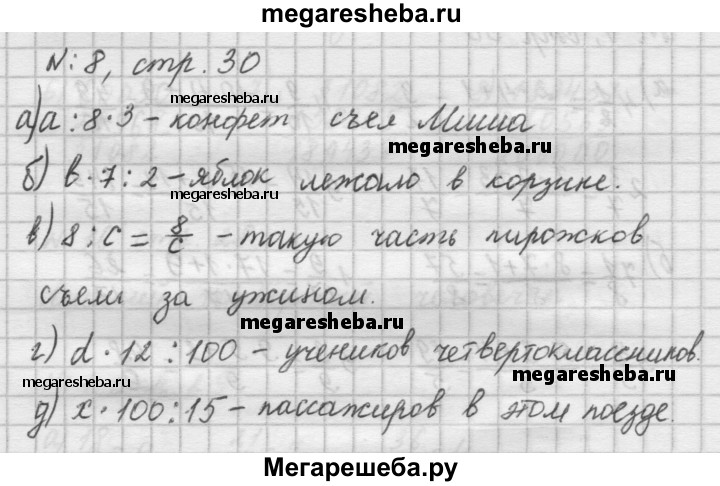 megaresheba.ru
№:8, стр. 30
megaresheba.ru
а) a : 8 · 3 – конфет съел Миша
megaresheba.ru
б) в · 7 : 2 – яблок лежало в корзине.
megaresheba.ru
в) 8 : c = 8/c – такую часть пирожков
съели за ужином.
megaresheba.ru
г) d · 12 : 100 – учеников четвертоклассников.
megaresheba.ru
megaresheba.ru
д) x · 100 : 15 – пассажиров в этом поезде.
Мегарешеба.ру